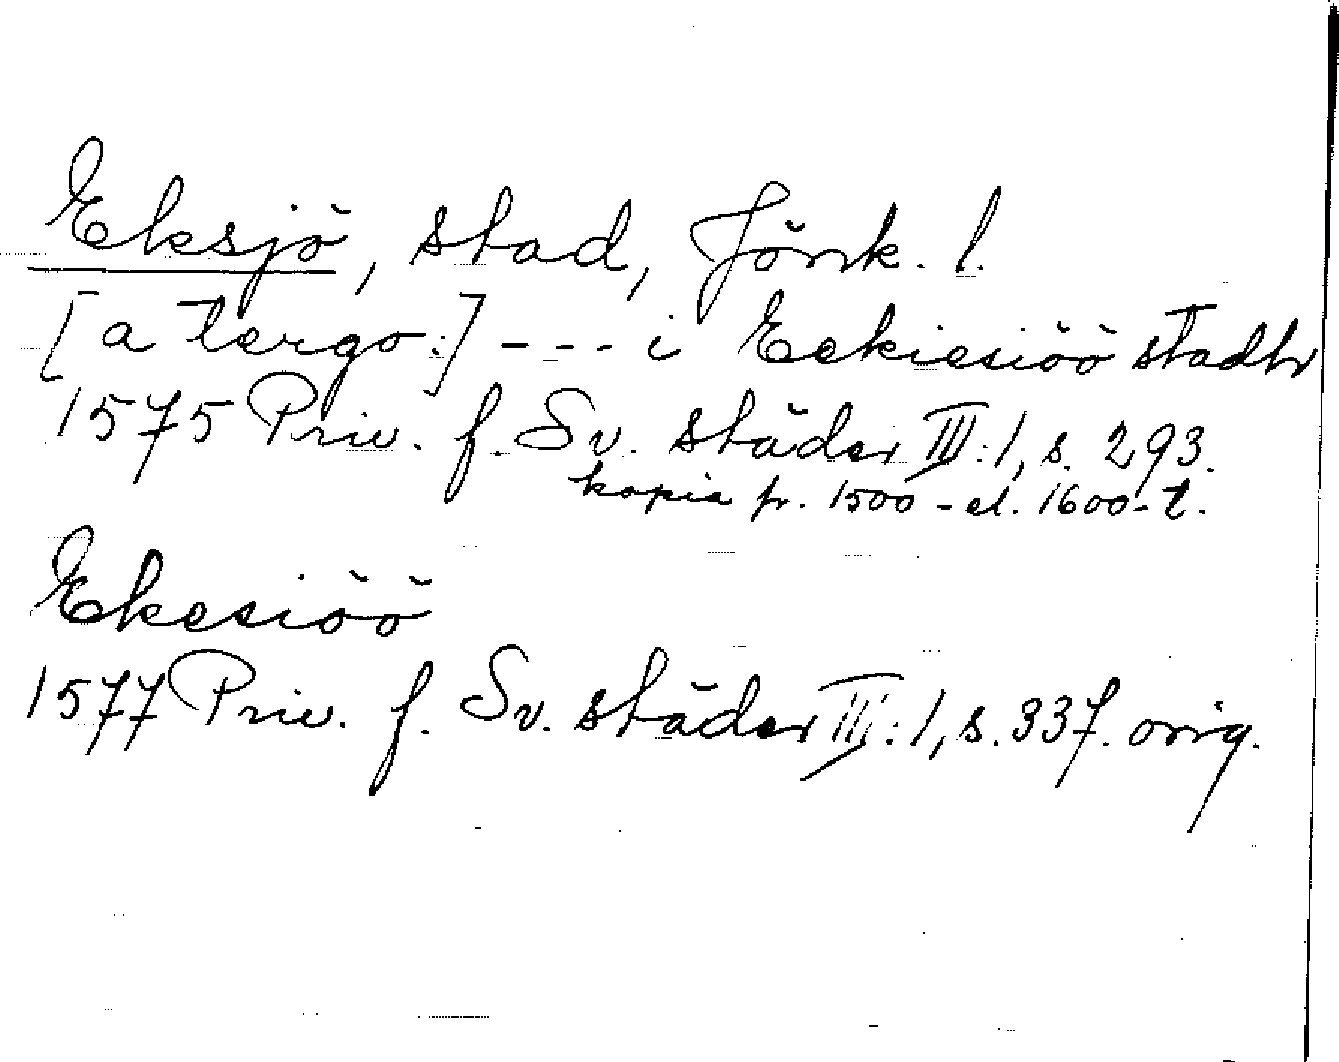 Eksjö, stad, Jönk. l.
[a tergo:] --- i Eekiesiöö stadh
1575 Priv. f. Sv. städer III:1, s. 293.
kopia fr. 1500- el. 1600-t.
Ekesiöö
1577 Priv. f. Sv. städer III:1, s. 337. orig.